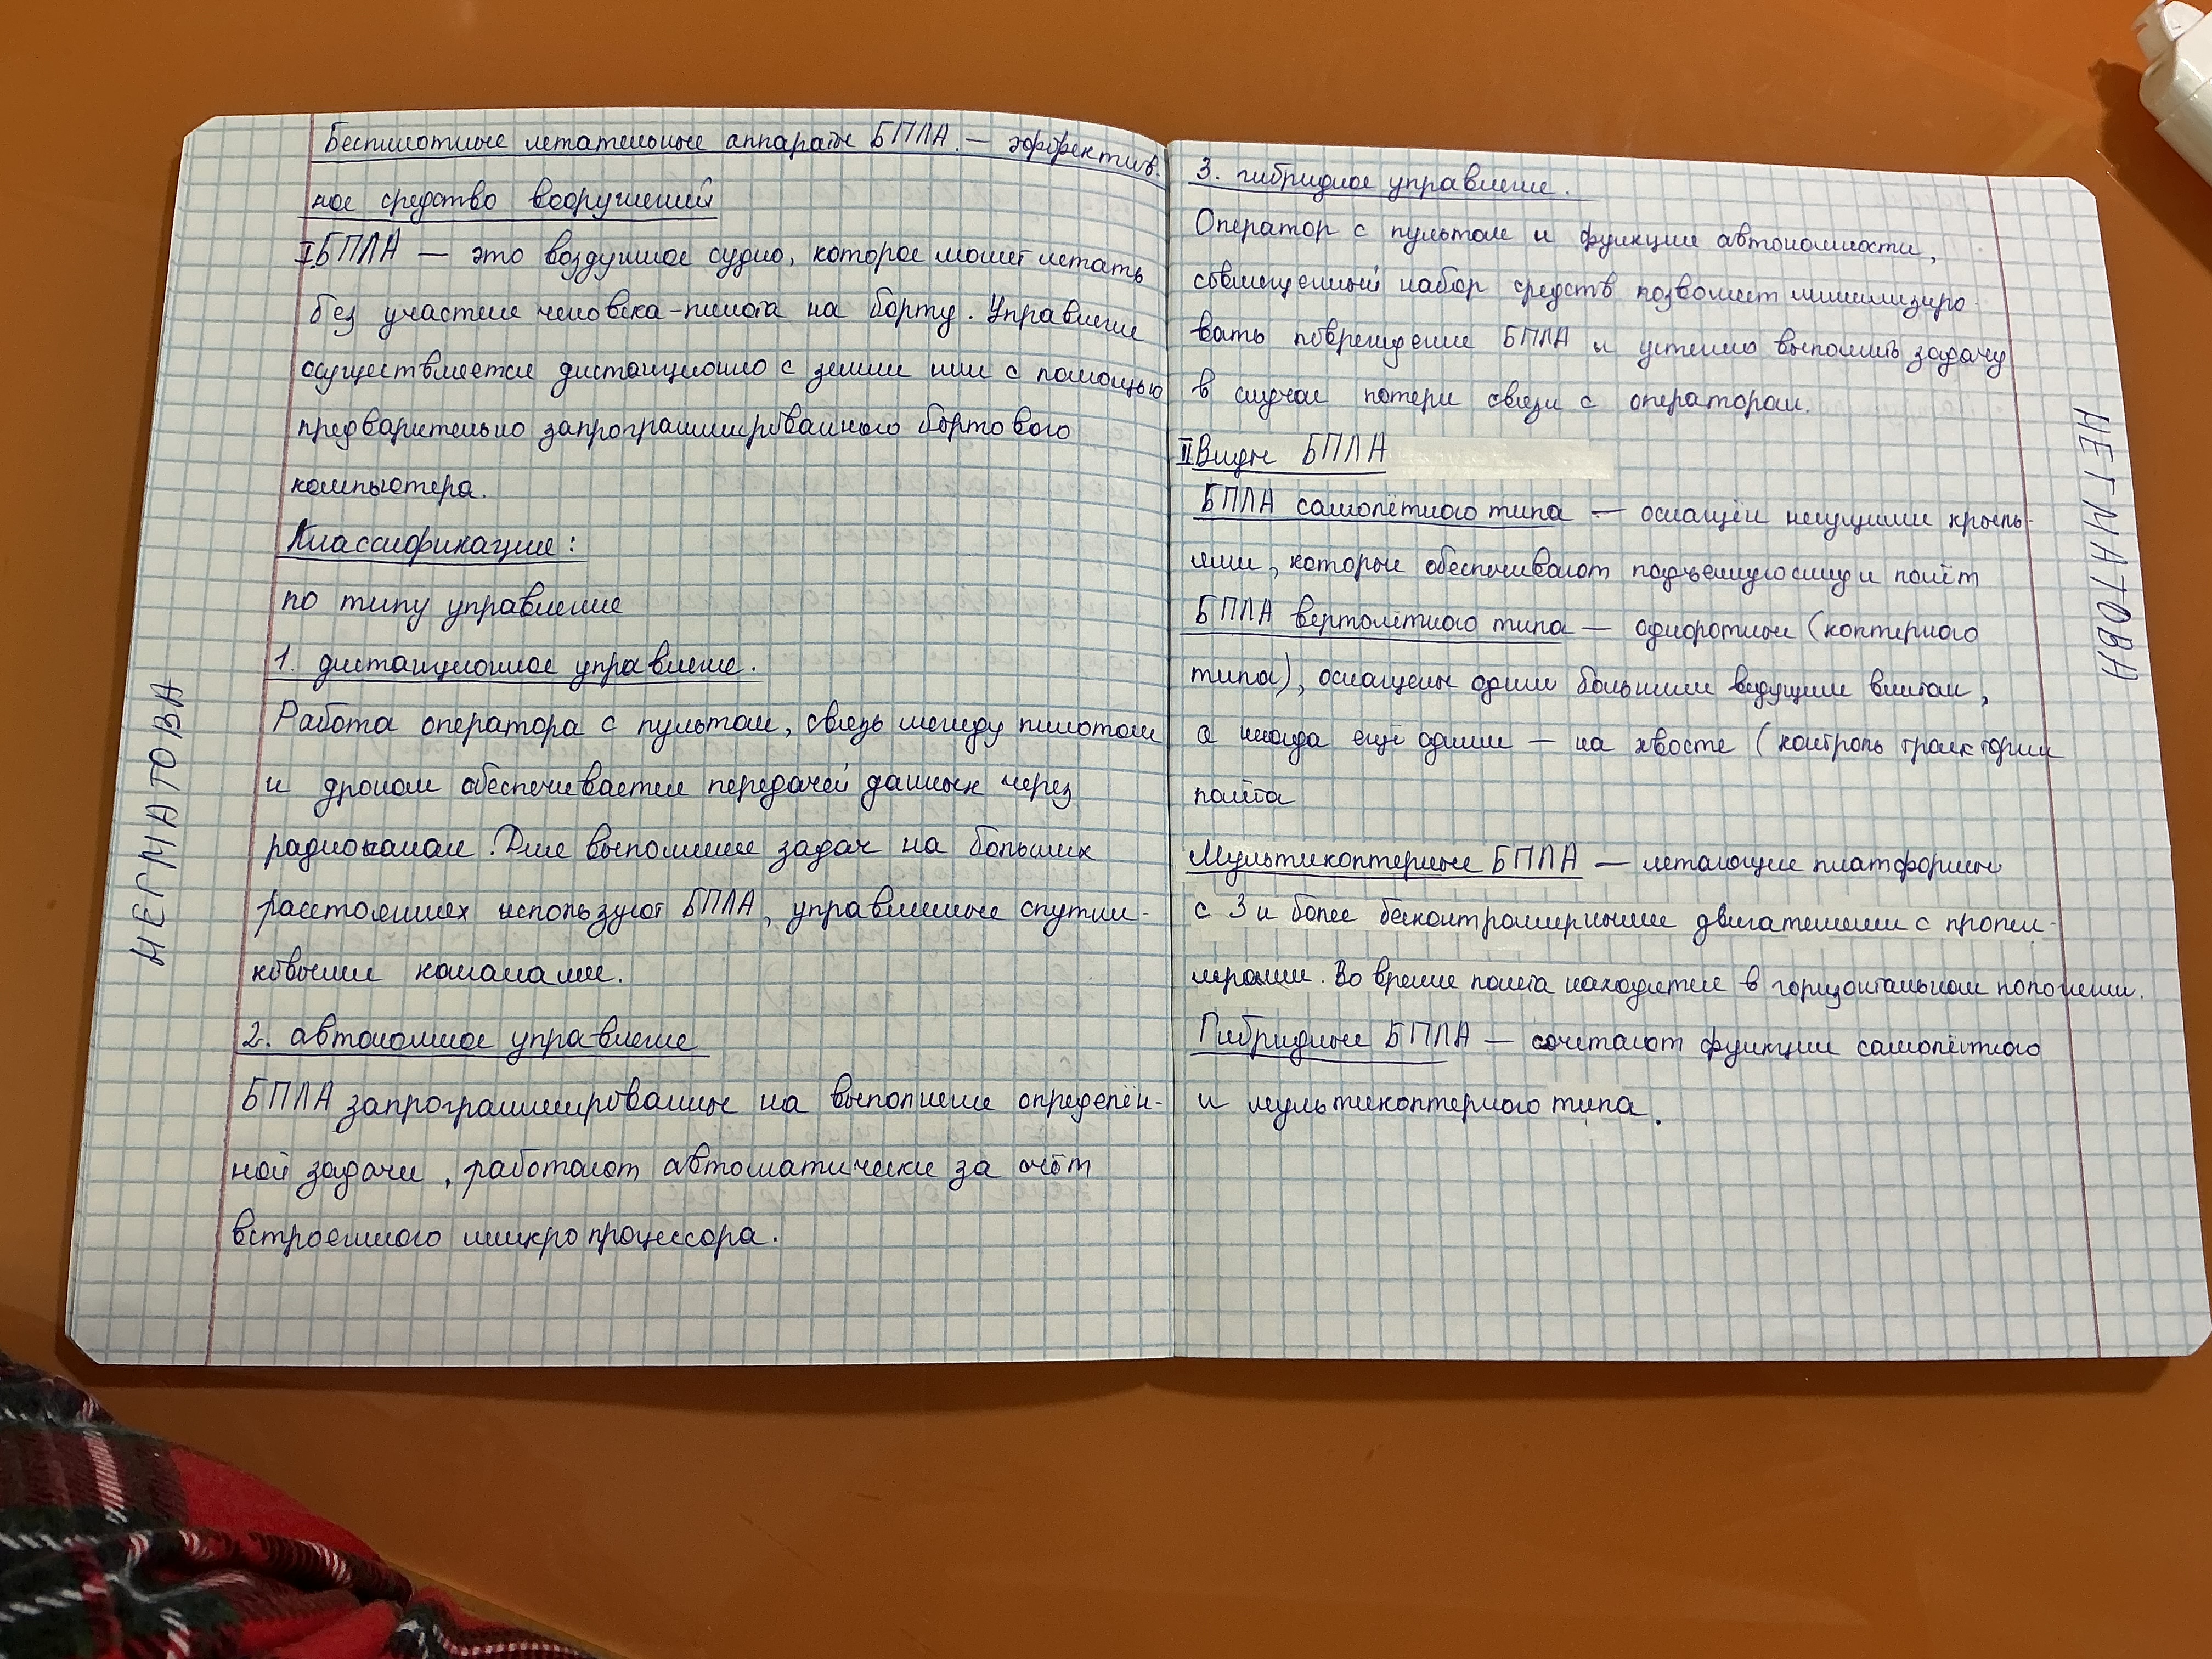 Беспилотные летательные аппараты БПЛА. — эффектив-
ное средство вооружений
I. БПЛА — это воздушное судно, которое может летать
без участия человека-пилота на борту. Управление
осуществляется дистанционно с земли или с помощью
предварительно запрограммированного бортового
компьютера.
Классификация:
по типу управления
1. дистанционное управление.
Работа оператора с пультом, связь между пилотом
и дроном обеспечивается передачей данных через
радиоканал. Для выполнения задач на больших
расстояниях используют БПЛА, управляемые спутни-
ковыми каналами.
2. автономное управление
БПЛА запрограммированные на выполнение определён-
ной задачи, работают автоматически за счёт
встроенного микропроцессора.
НЕГМАТОВА
3. гибридное управление.
Оператор с пультом и функции автономности,
совмещенный набор средств позволяет минимизиро-
вать повреждение БПЛА и успешно выполнить задачу
в случае потери связи с оператором.
II Виды БПЛА
БПЛА самолётного типа — оснащён несущими крыль-
ями, которые обеспечивают подъемную силу и полёт
БПЛА вертолётного типа — однороткые (коптерного
типа), оснащены одним большим ведущим винтом,
а иногда ещё одним — на хвосте (контроль траектории
полёта
Мультикоптерные БПЛА — летающие платформы
с 3 и более бесконтроллерными двигателями с пропел-
лерами. Во время полёта находятся в горизонтальном положении.
Гибридные БПЛА — сочетают функции самолётного
и мультикоптерного типа.
НЕГМАТОВА